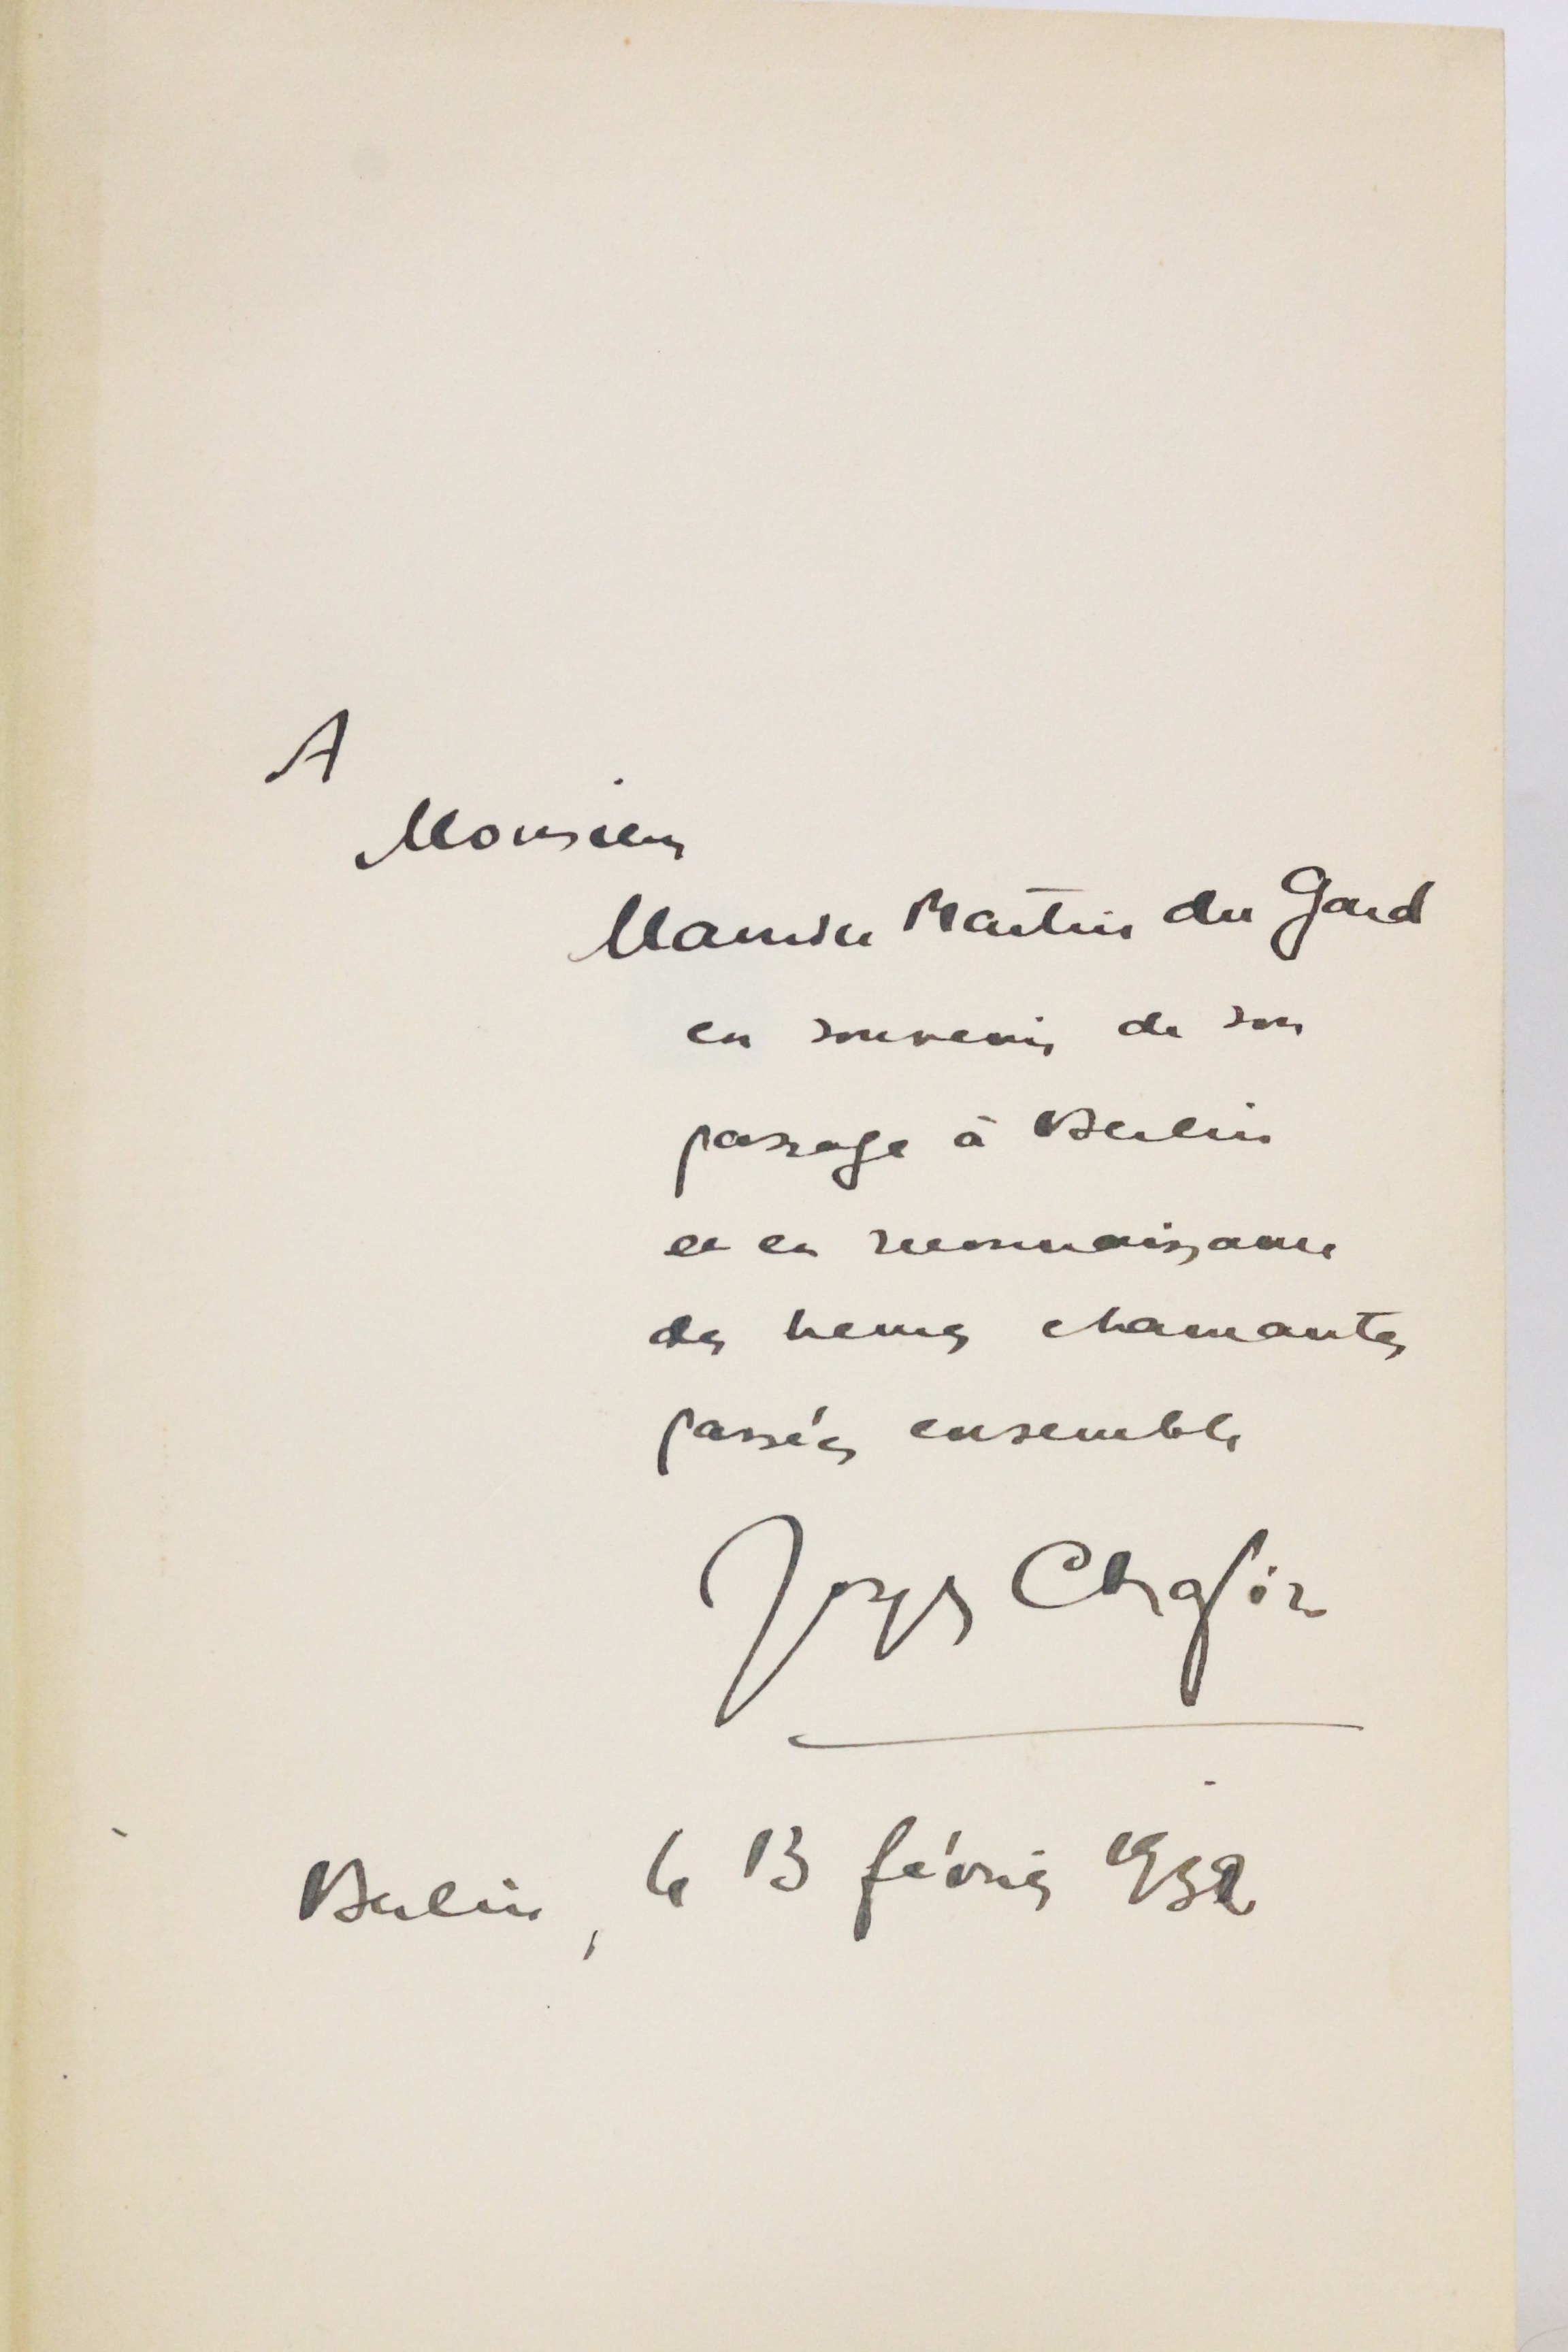 A
Monsieur
Maurice Martin du Gard
en souvenir de son
passage à Berlin
et en reconnaissance
des heures charmantes
passées ensemble
Joseph Chapiro
Berlin, le 13 février 1932